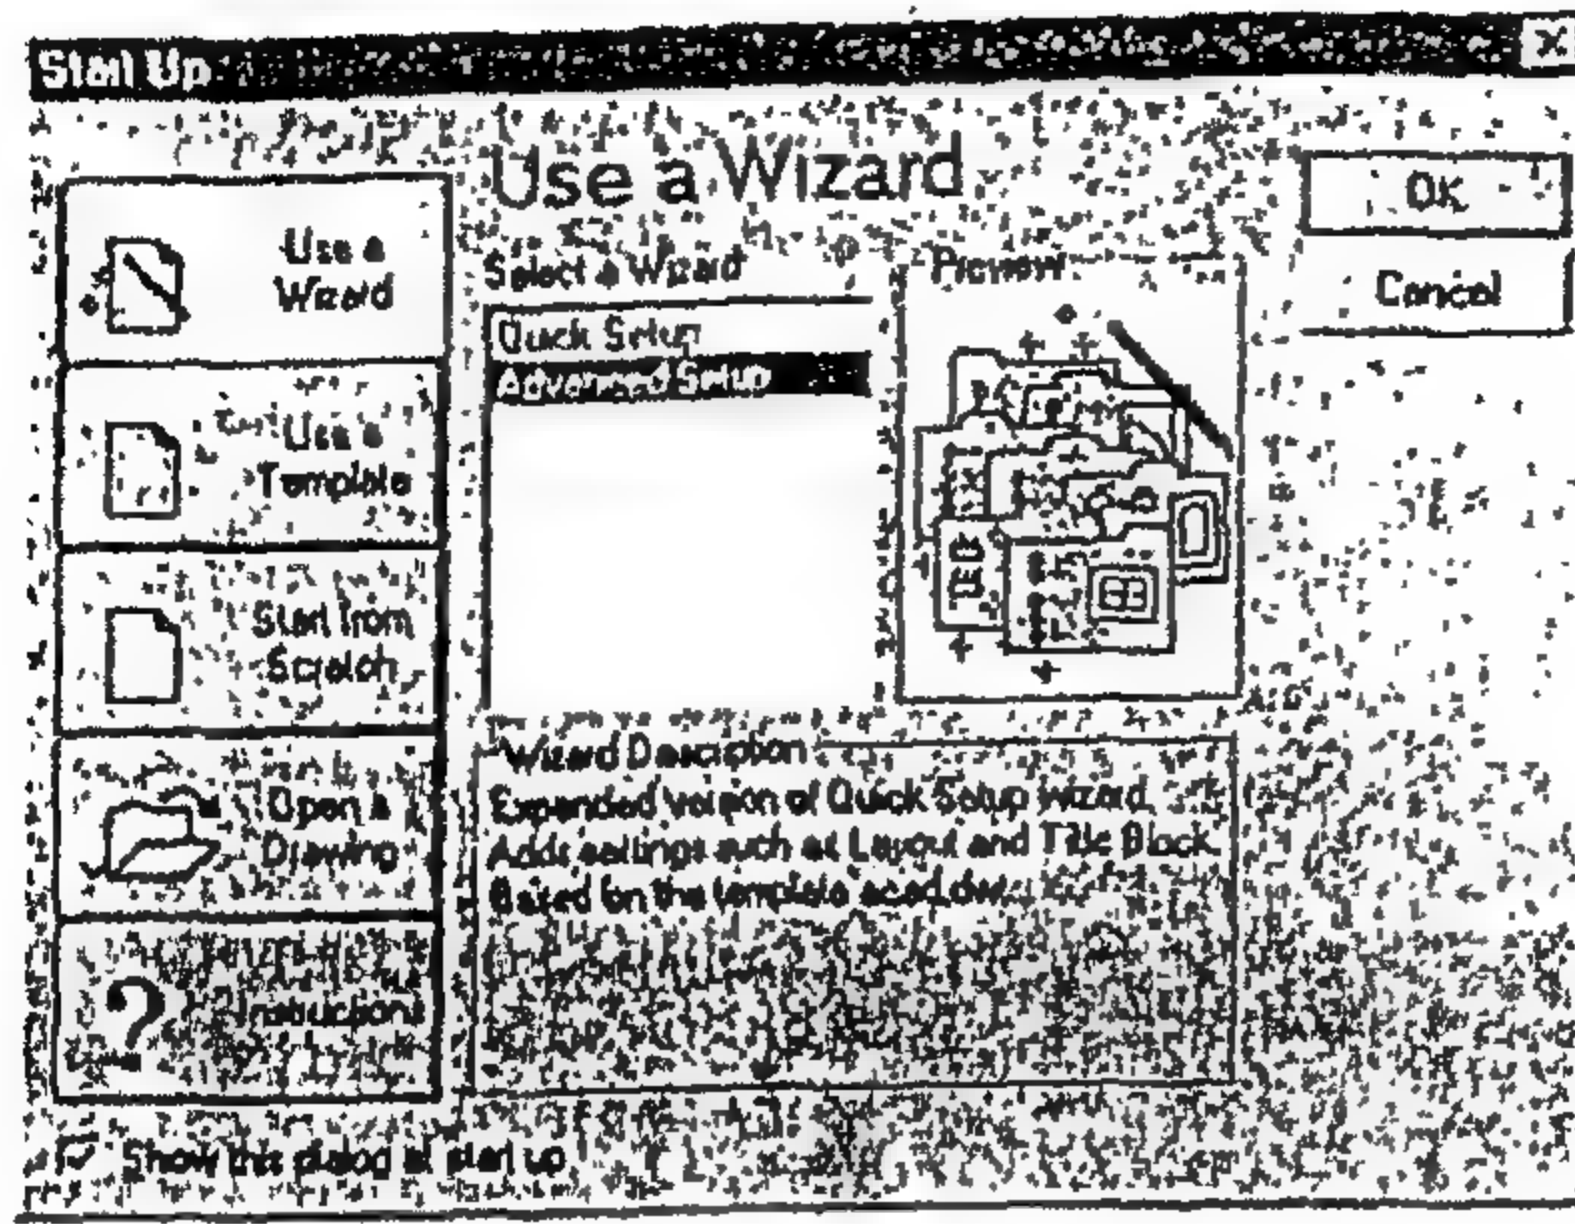 Start Up
Use a Wizard
Use a
Wizard
Use a
Template
Start from
Scratch
Open a
Drawing
Instructions
Select a Wizard
Quick Setup
Advanced Setup
Preview
OK
Cancel
Wizard Description
Expanded version of Quick Setup wizard.
Adds settings such as Layout and Title Block.
Based on the template acad.dwt.
Show this dialog at start up